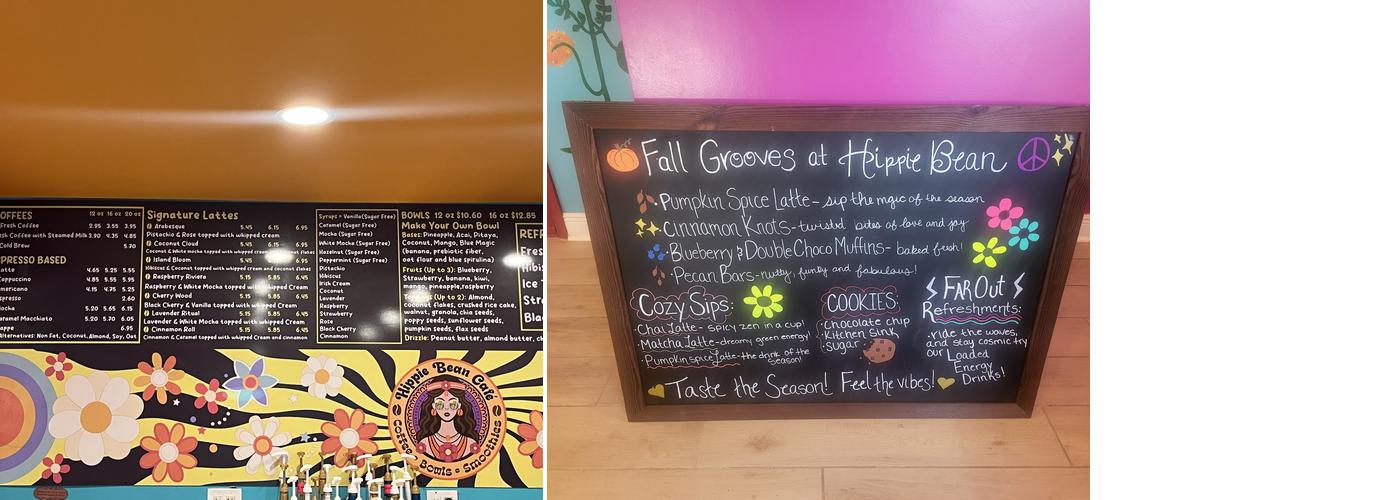 OFFEES 12 oz 16 oz 20 oz
Fresh Coffee 2.95 3.55 3.95
sh Coffee with Steamed Milk 3.90 4.35 4.85
Cold Brew 5.70
PRESSO BASED
atte 4.65 5.25 5.55
Cappuccino 4.85 5.55 5.95
mericano 4.15 4.75 5.25
spresso 2.60
ocha 5.20 5.65 6.15
aramel Macchiato 5.20 5.70 6.05
appe 6.95
lternatives: Non Fat, Coconut, Almond, Soy, Oat
Signature Lattes
Arabesque 5.45 6.15 6.95
Pistachio & Rose topped with whipped cream
Coconut Cloud 5.45 6.15 6.95
Coconut & White mocha topped with whipped cream and coconut flakes
Island Bloom 5.45 6.95
Hibiscus & Coconut topped with whipped cream and coconut flakes
Raspberry Riviera 5.15 5.85 6.45
Raspberry & White Mocha topped whipped Cream
Cherry Wood 5.15 5.85 6.45
Black Cherry & Vanilla topped with whipped Cream
Lavender Ritual 5.15 5.85 6.45
Lavender & White Mocha topped with whipped Cream
Cinnamon Roll 5.15 5.85 6.45
Cinnamon & Caramel topped with whipped Cream and cinnamon
Syrups - Vanilla(Sugar Free)
Caramel (Sugar Free)
Mocha (Sugar Free)
White Mocha (Sugar Free)
Hazelnut (Sugar Free)
Peppermint (Sugar Free)
Pistachio
Hibiscus
Irish Cream
Coconut
Lavender
Raspberry
Strawberry
Rose
Black Cherry
Cinnamon
BOWLS 12 oz $10.60 16 oz $12.85
Make Your Own Bowl
Bases: Pineapple, Acai, Pitaya,
Coconut, Mango, Blue Magic
(banana, prebiotic fiber,
oat flour and blue spirulina)
Fruits (Up to 3): Blueberry,
Strawberry, banana, kiwi,
mango, pineapple, raspberry
Toppings (Up to 2): Almond,
coconut flakes, crushed rice cake,
walnut, granola, chia seeds,
poppy seeds, sunflower seeds,
pumpkin seeds, flax seeds
Drizzle: Peanut butter, almond butter, ch
REFR
Fres
Hibis
Ice T
Stra
Blac
Hippie Bean Café
Coffee • Bowls • Smoothies
Fall Grooves at Hippie Bean
Pumpkin Spice Latte - sip the magic of the season
Cinnamon Knots - twisted bites of love and joy
Blueberry & Double Choco Muffins - baked fresh!
Pecan Bars - nutty, funky and fabulous!
Cozy Sips:
Chai Latte - spicy zen in a cup!
Matcha Latte - dreamy green energy!
Pumpkin spice Latte - the drink of the
season!
COOKIES:
chocolate chip
Kitchen Sink
Sugar
FAR Out
Refreshments:
ride the waves,
and stay cosmic try
our Loaded
Energy
Drinks!
Taste the Season! Feel the vibes!